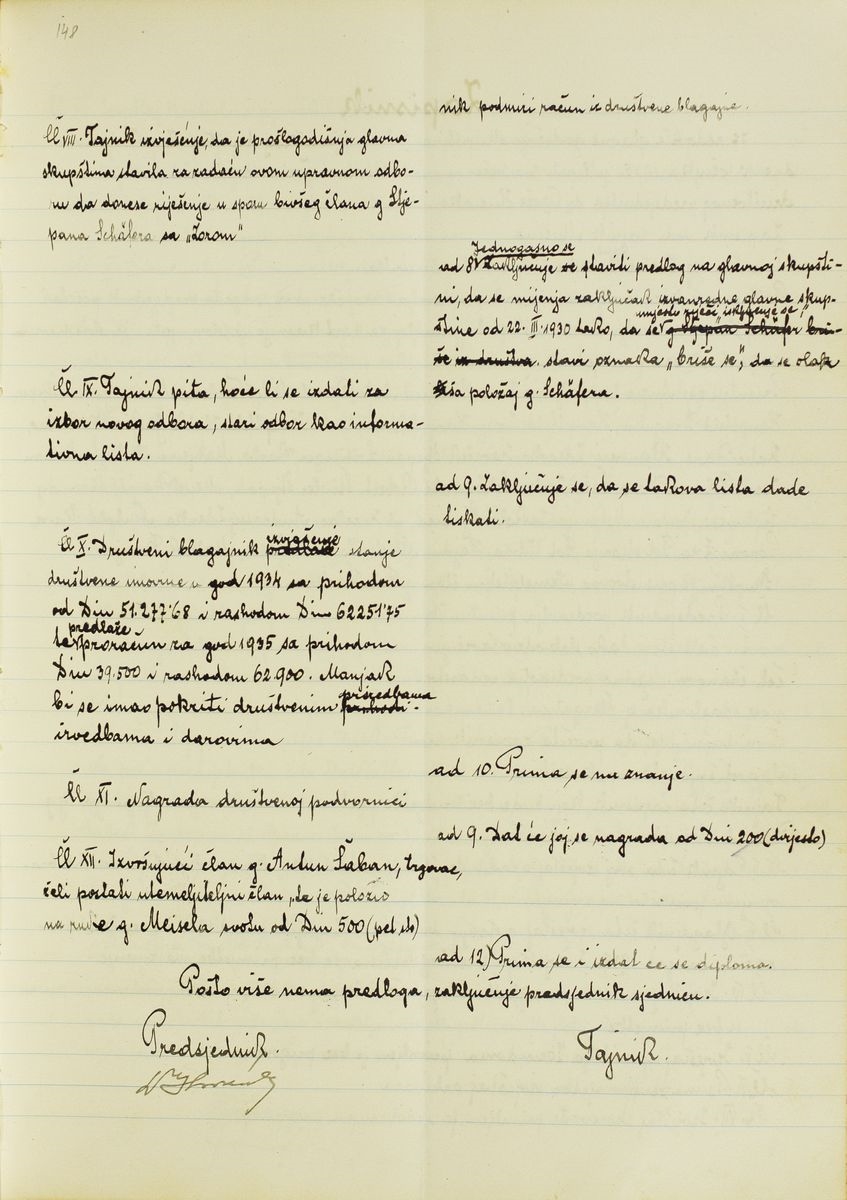 148
nik podmiri račun iz društvene blagajne.
Čl VIII. Tajnik izvješćuje, da je prošlogodišnja glavna
skupština stavila za zadaću ovom upravnom odbo-
ru da donese riješenje u sporu bivšeg člana g Stje-
pana Schäfera sa „Zorom"
Jednoglasno se
ad 8. Zaključuje se staviti predlog na glavnoj skupšti-
ni, da se mijenja zaključak izvanredne glavne skup-
mjesto riječi „isključuje se",
štine od 22. III. 1930 tako, da se g Stjepan Schäfer bri-
še iz društva. stavi oznaka „briše se", da se olak
ša položaj g. Schäfera.
Čl IX. Tajnik pita, hoće li se izdati za
izbor novog odbora, stari odbor kao informa-
tivna lista.
ad 9. Zaključuje se, da se takova lista dade
tiskati.
izvješćuje
Čl X. Društveni blagajnik predlaže stanje
društvene imovine u god 1934 sa prihodom
od Din 51.277'68 i rashodom Din 62251'75
predlaže
te proračun za god 1935 sa prihodom
Din 39.500 i rashodom 62.900. Manjak
priredbama
bi se imao pokriti društvenim prihodi-
izvedbama i darovima
ad 10. Prima se na znanje.
Čl XI. Nagrada društvenoj podvornici
ad 9. Dat će joj se nagrada od Din 200 (dvjesto)
Čl XII. Izvršujući član g. Antun Šaban, trgovac,
želi postati utemeljiteljni član, te je položio
na ruke g. Meisela svotu od Din 500 (pet sto)
ad 12) Prima se i izdat će se diploma.
Pošto više nema predloga, zaključuje predsjednik sjednicu.
Predsjednik.
Tajnik.